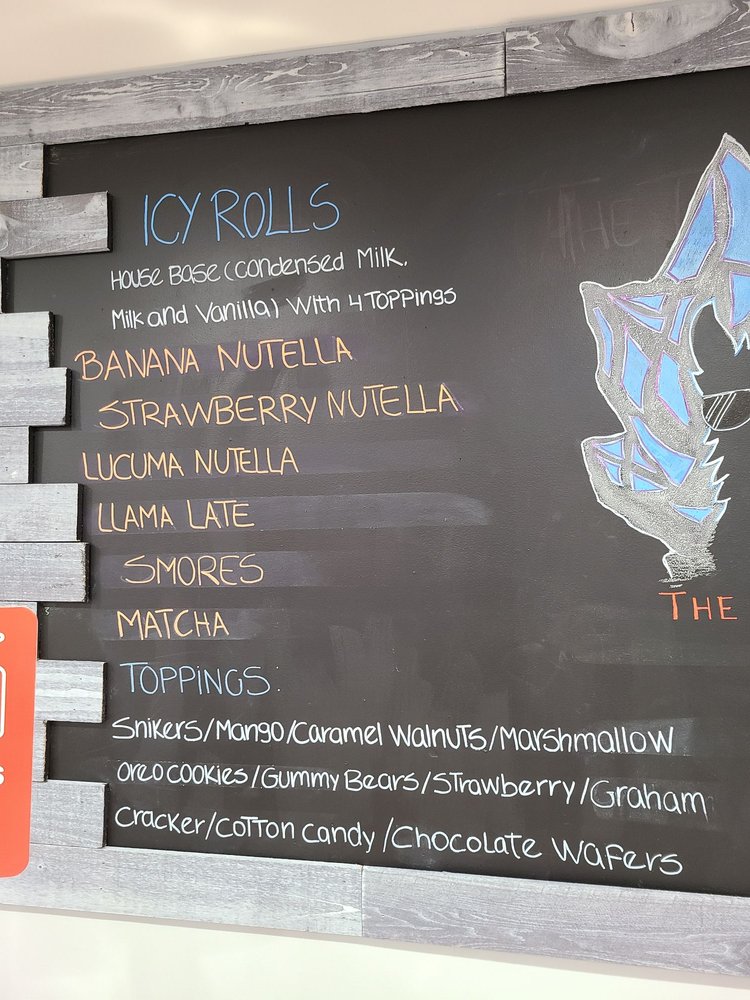 ICY ROLLS
House Base (condensed Milk,
Milk and Vanilla) With 4 Toppings
BANANA NUTELLA
STRAWBERRY NUTELLA
LUCUMA NUTELLA
LLAMA LATE
SMORES
MATCHA
TOPPINGS.
Snikers/Mango/Caramel Walnuts/Marshmallow
oreo cookies/Gummy Bears/Strawberry/Graham
Cracker/Cotton Candy/Chocolate Wafers
THE